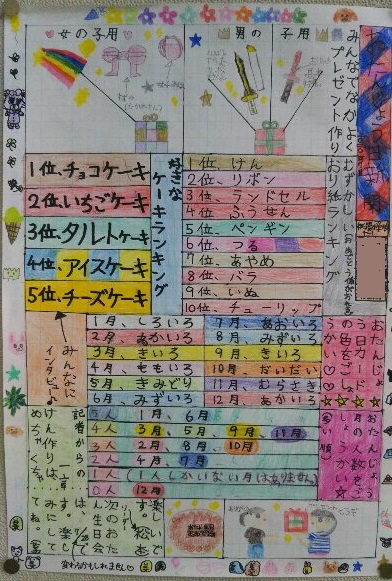 みんなでなかよく
プレゼント作り
女の子用
男の子用
むずかしい
おり紙ランキング
1位、けん
2位、リボン
3位、ランドセル
4位、ふうせん
5位、ペンギン
6位、つる
7位、あやめ
8位、バラ
9位、いぬ
10位、チューリップ
好きな
ケーキランキング
1位、チョコケーキ
2位、いちごケーキ
3位、タルトケーキ
4位、アイスケーキ
5位、チーズケーキ
みんなに
インタビュー♪
おたんじょ
う日カード
の色をごしょ
うかい♡♡
1月、しろいろ
2月、あかいろ
3月、きいろ
4月、ももいろ
5月、きみどり
6月、みずいろ
7月、あおいろ
8月、みずいろ
9月、きいろ
10月、だいだい
11月、むらさき
12月、あかいろ
おたんじょう
月の人数をご
しょうかい☆
(多い順)
5人 1月、6月
4人 3月、5月、9月、11月
3人 2月、8月、10月
2人 4月、7月
1人 (1人しかいない月はありません)
0人 12月
記者からの
一言
けん作りは、楽し
めちゃくちゃ
みにして
てね。
楽しいで
す。
次のおた
ん生日会
変わるかもしれません♡